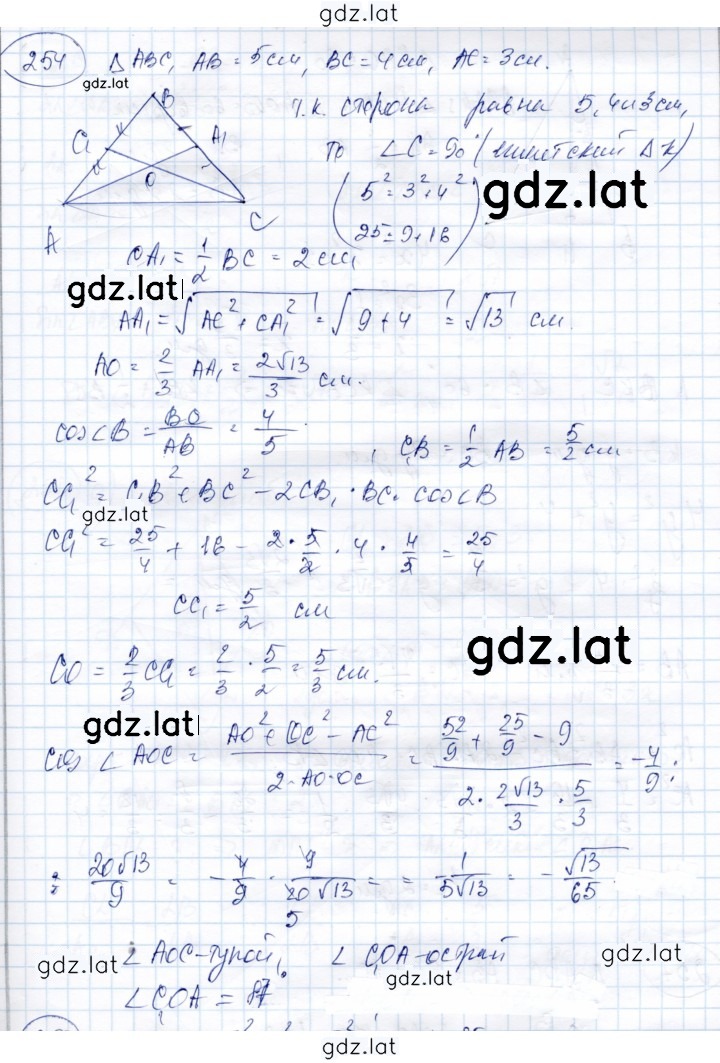 gdz.lat
254 △ ABC, AB = 5см, BC = 4см, AC = 3см.
gdz.lat
Т.к. сторона равна 5, 4 и 3см,
то ∠C = 90° (египетский △к)
B
C₁
A₁
O
A
C
(5² = 3² + 4²
25 = 9 + 16)
gdz.lat
CA₁ = 1/2 BC = 2 см
gdz.lat
AA₁ = √(AC² + CA₁²) = √(9 + 4) = √13 см.
AO = 2/3 AA₁ = 2√13/3 см.
cos∠B = BC/AB = 4/5
, C₁B = 1/2 AB = 5/2 см
CC₁² = C₁B² + BC² - 2CB₁ · BC · cos∠B
gdz.lat
CC₁² = 25/4 + 16 - 2 · 5/2 · 4 · 4/5 = 25/4
CC₁ = 5/2 см
gdz.lat
CO = 2/3 CC₁ = 2/3 · 5/2 = 5/3 см.
gdz.lat
cos ∠AOC = (AO² + OC² - AC²)/(2·AO·OC) = (52/9 + 25/9 - 9)/(2 · 2√13/3 · 5/3) = -4/9 :
: 20√13/9 = -4/9 · 9/20√13 = = 1/5√13 = -√13/65
5
∠AOC-тупой, ∠C₁OA-острый
gdz.lat
gdz.lat
∠C₁OA = 87°
gdz.lat